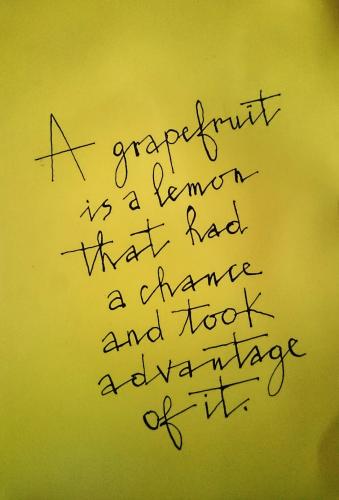 A grapefruit
is a lemon
that had
a chance
and took
advantage
of it.